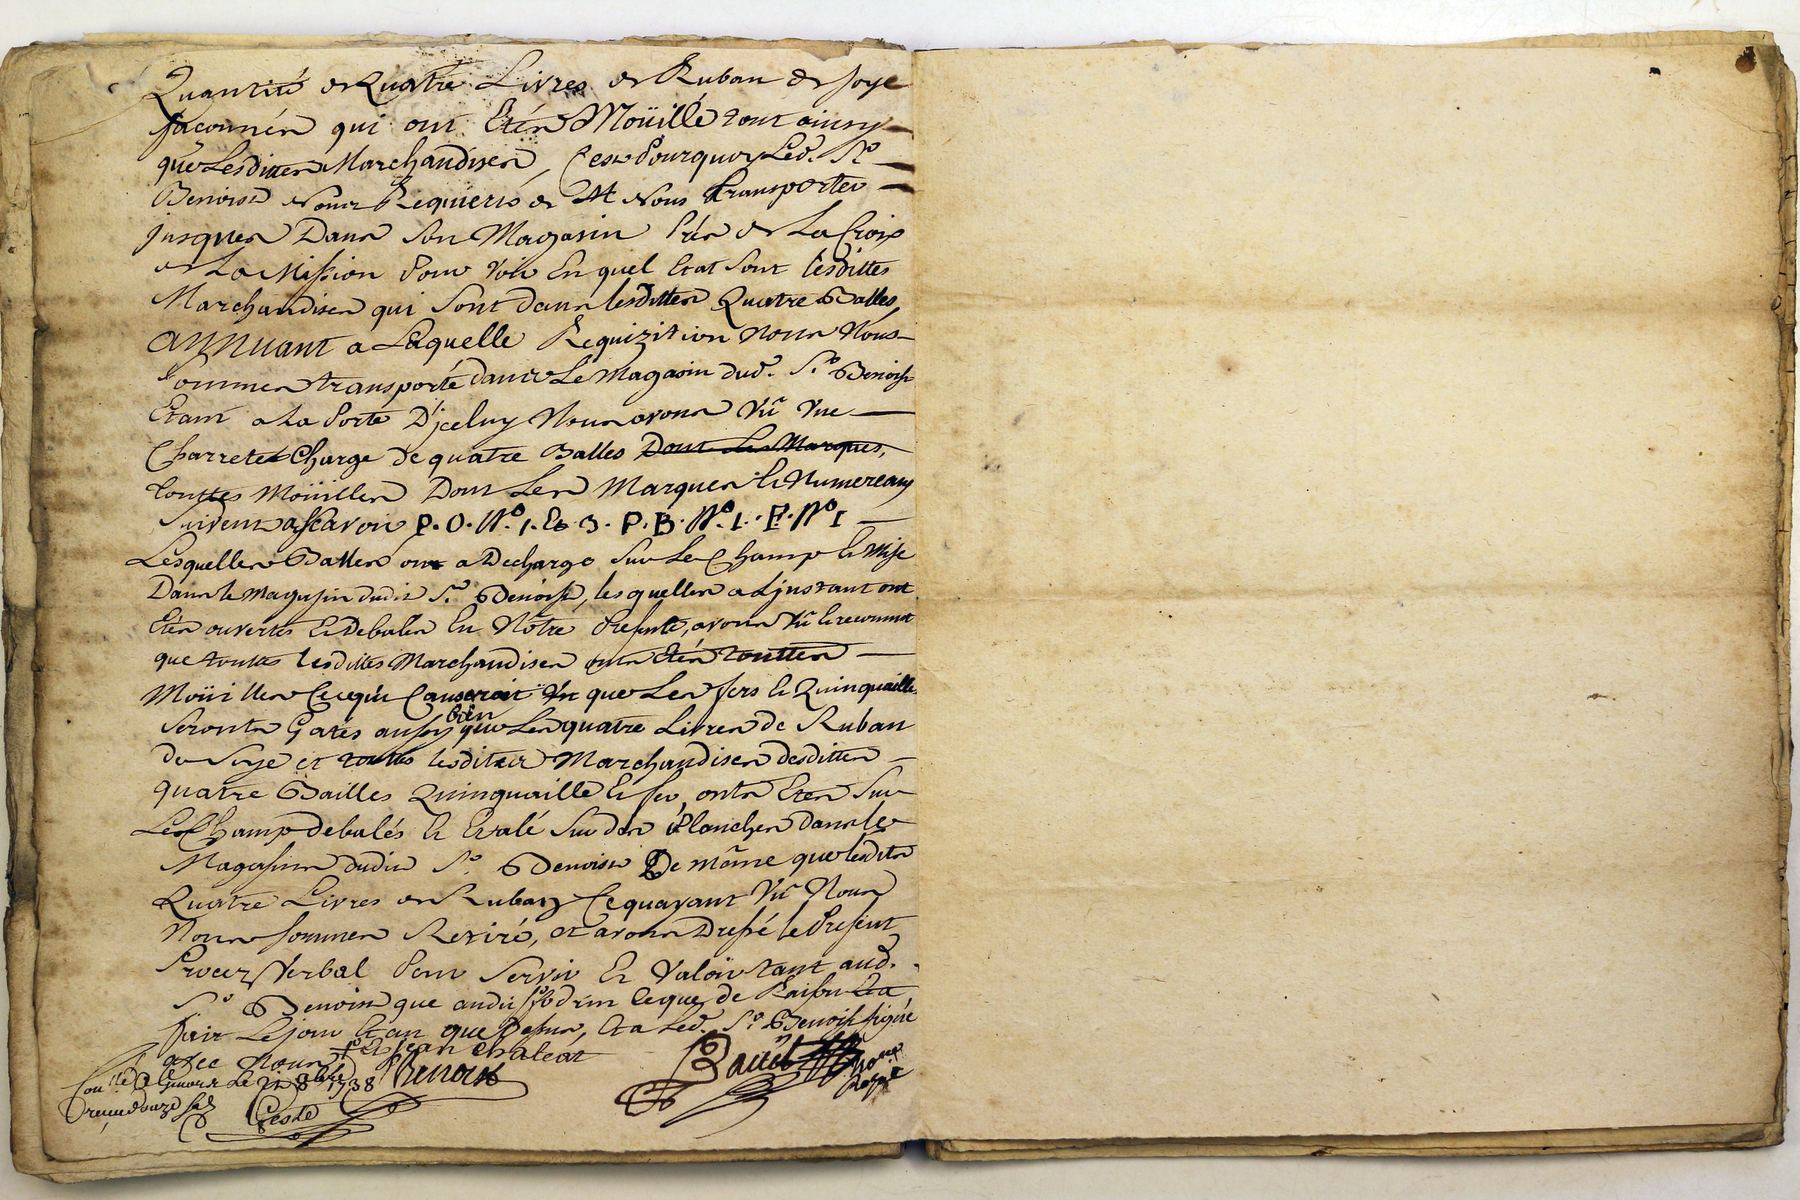 Quantité de Quatre Livres de Ruban de soye
façonnés qui ont Etés Moüillé tout ainsy
que Lesdittes Marchandises, C'est Pourquoy Led. Sr
Benoist nous Requiers de Nous transporter
jusques Dans Son Magasin Prés de La Croix
de La Mission Pour Voir En quel Etat Sont lesdittes
Marchandises qui Sont dans lesdittes Quatre Balles,
annuant a Laquelle Requizition Nous Nous
Sommes transporté dans Le Magasin dud. Sr Benoist
Etant a La Porte D'jceluy Nous avons Vû Vne
Charrete Charge de quatre Balles Dont Les Marques,
touttes Moüilles Dont Les Marques & Numereaux
Suivent assavoir P. O. No. 1. Et 3. P. B. No. 1. P. No 1
Lesquelles Balles ont a Decharge Sur Le Champ & Mise
Dans le Magasin dudit Sr Benoist, lesquelles a Ljnstant ont
Etés ouvertes & Debalés En Nôtre Presente, avons Vû & reconnut
que toutes lesdittes Marchandises onts Etés touttes
Moüilles Ce qui Causeroit que Les fers & Quinquailles
Seronts Gatés aussy bien que Les quatre Livres de Ruban
de Soye et toutes lesdites Marchandises desdittes
quatre Bailles Quinquaille & fer, onts Etés Sur
Le Champ debalés & Evalé Sur des Planches dans le
Magasins dudit Sr. Benoist De même que lesdits
Quatre Livres de Ruban Ce quayant Vû Nous
Nous sommes Retiré, et avons Dressé le Present
Procez Verbal Pour Servir & Valoir tant aud.
Sr. Benoist que audit ce que de Raison
fait Le jour & an que Dessus, Et a Led. Sr. Benoist signé
avec Nous Jean Chaleat
Benoist
Con.lé a Le 21 8bre 1738
Receu douze sols
Geste